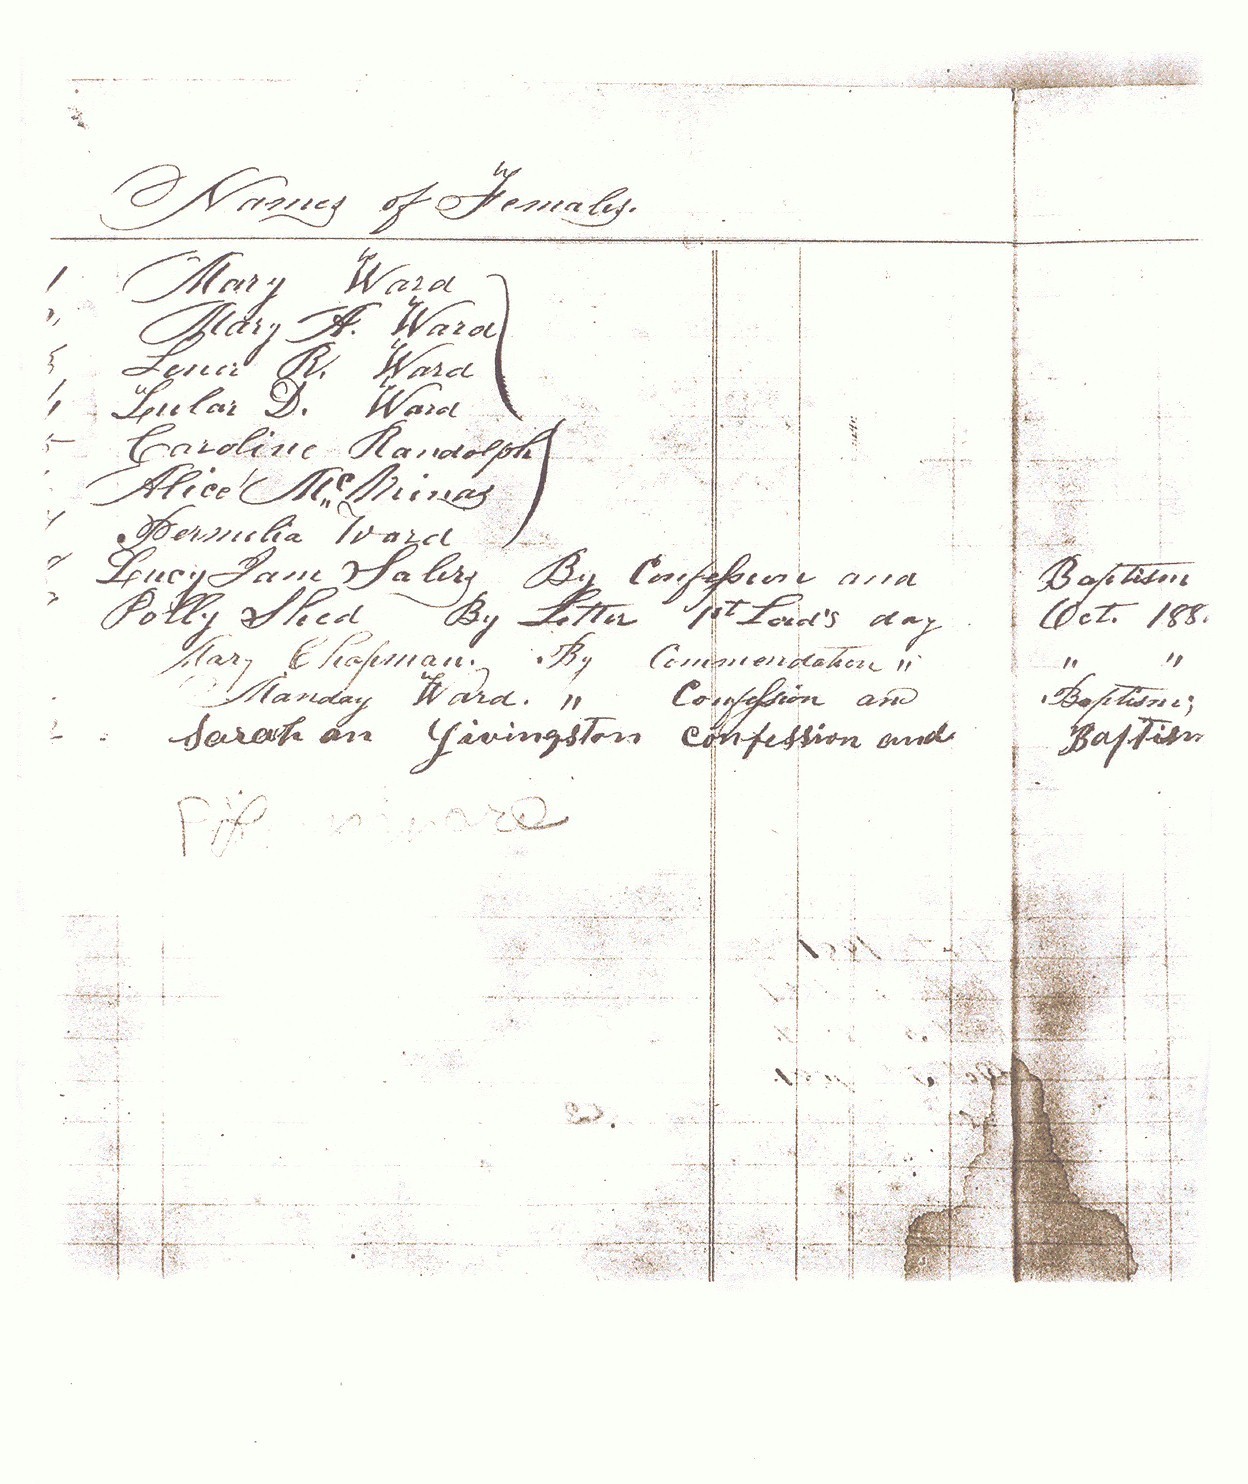 Names of Females.
1 Mary Ward
" Mary A. Ward
Lena R. Ward
Lular D. Ward
Caroline Randolph
Alice McMinas
Permelia Ward
Lucy Jane Salers By Confession and Baptism
Polly Shed By Letter 1st Lord's day Oct. 188
Mary Chapman. By Commendation " " "
Manday Ward. " Confession and Baptism;
Sarah an Livingston Confession and Baptism